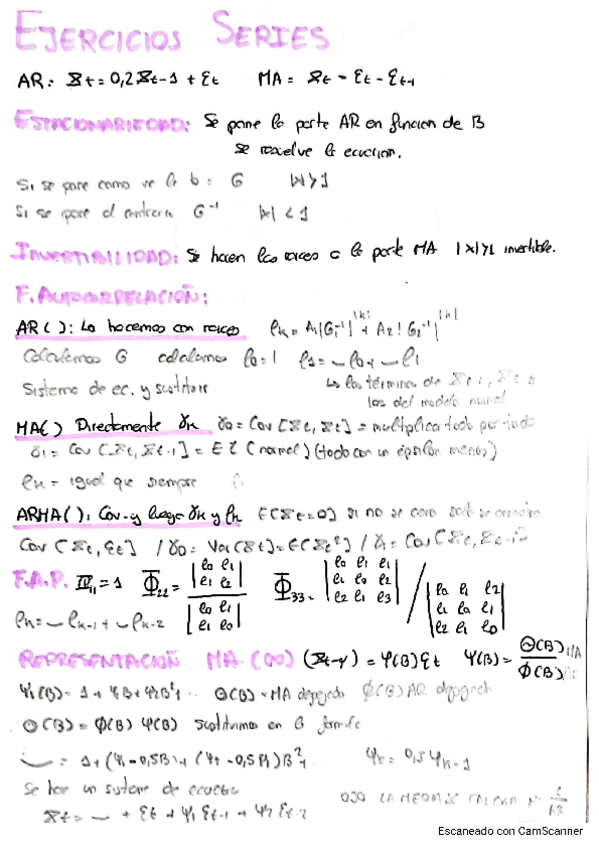 EJERCICIOS SERIES
AR: Xt = 0,2Xt-1 + Et MA = Xt - Et - Et-1
ESTACIONARIEDAD: Se pone la parte AR en funcion de B
se resuelve la ecuacion.
Si se pone como ve la b = G |x|>1
Si se pone al contrario G^-1 |x| < 1
INVERTIBILIDAD: Se hacen las raices a la parte MA |x|>1 invertible.
F. AUTOCORRELACIÓN:
AR( ): Lo hacemos con raices ρk = A1|G1^-1|^|k| + A2 |G2^-1|^|k|
Calculamos G calculamos ρ0=1
Sistema de ec. y sustituir los términos de
los del modelo
MA( ) Directamente γk γ0 = Cov[Xt, Xt] = multiplica todo por todo
γ1 = Cov[Xt, Xt-1] = (normal) (todo con un epsilon menos)
ρk = igual que siempre
ARMA( ): Cov y luego γk y ρk E[Xt=0] si no se
Cov[Xt, Et] / γ0 = Var(Xt) = E(Xt²) / γ1 = Cov[Xt, Xt-1]
F.A.P. Φ11 = 1 Φ22 = |ρ0 ρ1| |ρ1 ρ2| / |ρ0 ρ1| |ρ1 ρ0| Φ33 = |ρ0 ρ1 ρ1| |ρ1 ρ0 ρ2| |ρ2 ρ1 ρ3| / |ρ0 ρ1 ρ2| |ρ1 ρ0 ρ1| |ρ2 ρ1 ρ0|
ρk = _ ρk-1 + _ ρk-2
REPRESENTACIÓN MA(∞) (Xt-μ) = Ψ(B)Et Ψ(B) = Θ(B) MA / Φ(B) AR
Ψ(B) = 1 + Ψ1B + Ψ2B² + ... Θ(B) = MA despejado Φ(B) AR despejado
Θ(B) = Φ(B) Ψ(B) sustituimos en la formula
= 1 + (Ψ1 - 0,5B) + (Ψ2 - 0,5Ψ1)B² + Ψk = 0,5Ψk-1
Se hace un sistema de
Xt = _ + Et + Ψ1 Et-1 + Ψ2 Et-2
OJO LA MEDIA SE
Escaneado con CamScanner